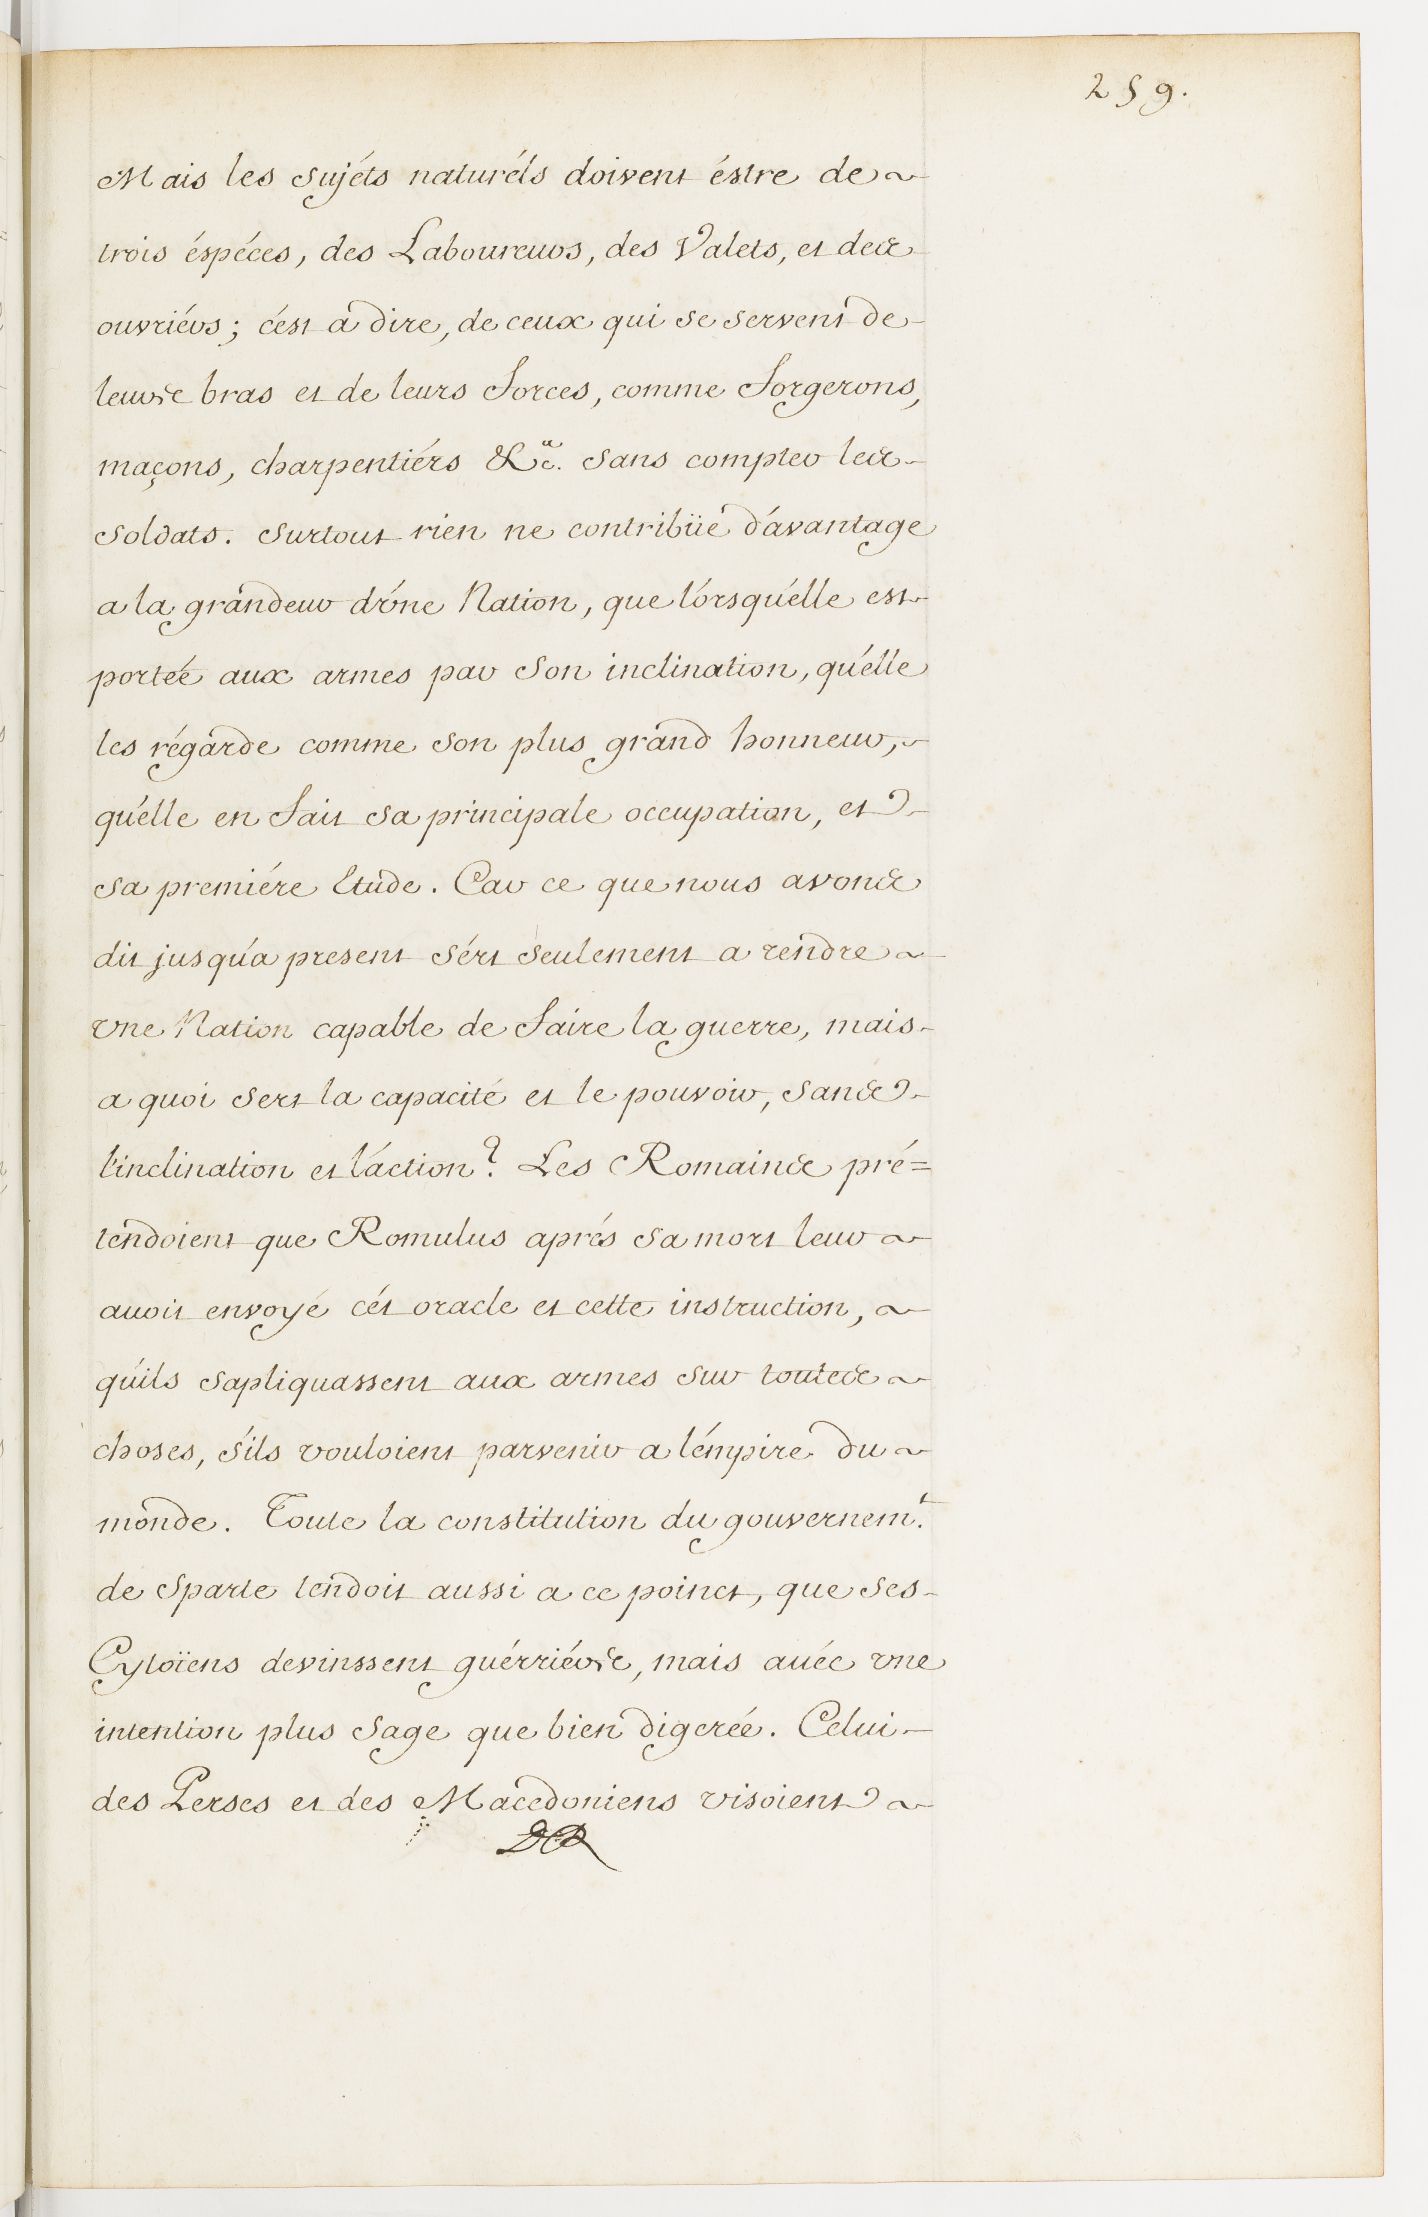 259.
Mais les sujéts naturéls doivent éstre de
trois éspéces, des Laboureurs, des Valets, et des
ouvriérs; c'ést a dire, de ceux qui se servent de
leurs bras et de leurs forces, comme forgerons,
maçons, charpentiérs &c.ᵃ sans compter les
soldats. surtout rien ne contribüe d'ávantage
a la grandeur d'vne Nation, que lórsqu'élle est
portée aux armes par son inclination, qu'élle
les régarde comme son plus grand honneur,
qu'élle en fait sa principale occupation, et
sa premiére Etude. Car ce que nous avons
dit jusqu'a present sért seulement a rendre
vne Nation capable de faire la guerre, mais
a quoi sert la capacité et le pouvoir, sans
l'inclination et l'áction? Les Romains pré=
tendoient que Romulus aprés sa mort leur
auoit envoyé cét oracle et cette instruction,
qu'ils sapliquassent aux armes sur toutes
choses, s'ils vouloient parvenir a l'émpire du
monde. Toute la constitution du gouvernem.ᵗ
de sparte tendoit aussi a ce poinct, que ses
Cytoïens devinssent guérriérs, mais auéc vne
intention plus sage que bien digerée. Celui
des Perses et des Macedoniens visoient